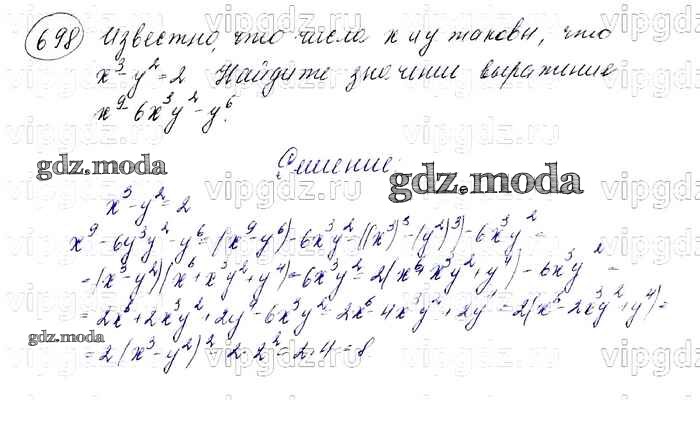 698 Известно, что числа x и y таковы, что
x³-y²=2 Найдите значение выражение
x⁹-6x³y²-y⁶.
gdz.moda
Решение:
gdz.moda
x³-y²=2
x⁹-6y³y²-y⁶=(x⁹-y⁶)-6x³y²=((x³)³-(y²)³)-6x³y²=
=(x³-y²)(x⁶+x³y²+y⁴)=6x³y²=2(x⁶x³y²+y⁴)-6x³y²=
=2x⁶+2x³y²+2y⁴-6x³y²=2x⁶-4x³y²+2y⁴=2(x⁶-2x³y²+y⁴)=
gdz.moda
=2(x³-y²)²=2·2²=2·4=8
vipgdz.com